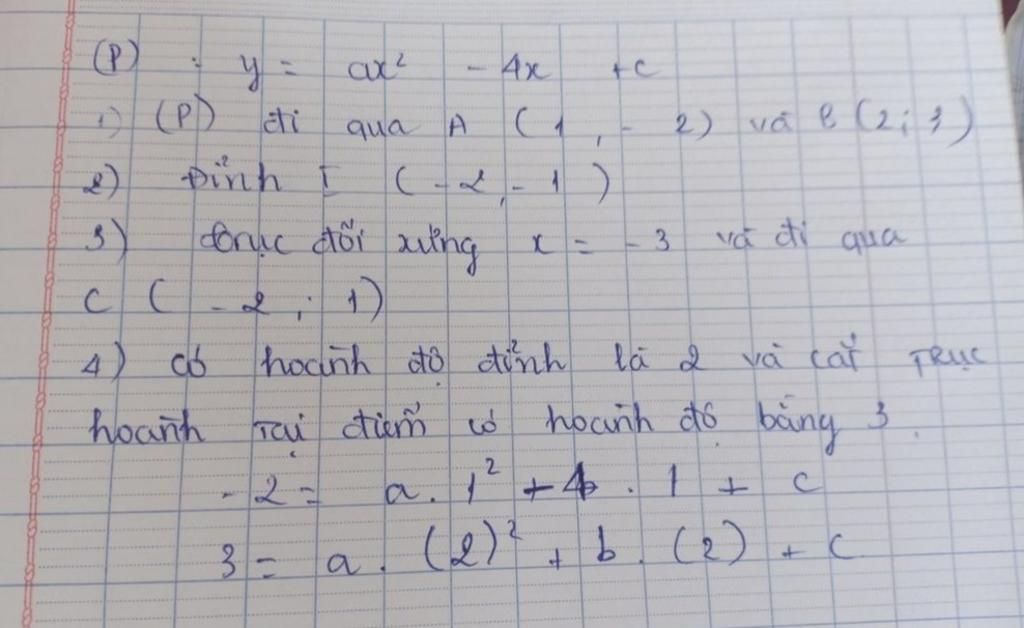 (P) : y = ax² - 4x + c
1) (P) đi qua A (1, -2) và B (2; 3)
2) Đỉnh I (-2, -1)
3) trục đối xứng x = -3 và đi qua
C (-2; 1)
4) có hoành độ đỉnh là 2 và cắt TRỤC
hoành tại điểm có hoành độ bằng 3.
-2 = a. 1² + b. 1 + c
3 = a. (2)² + b. (2) + c